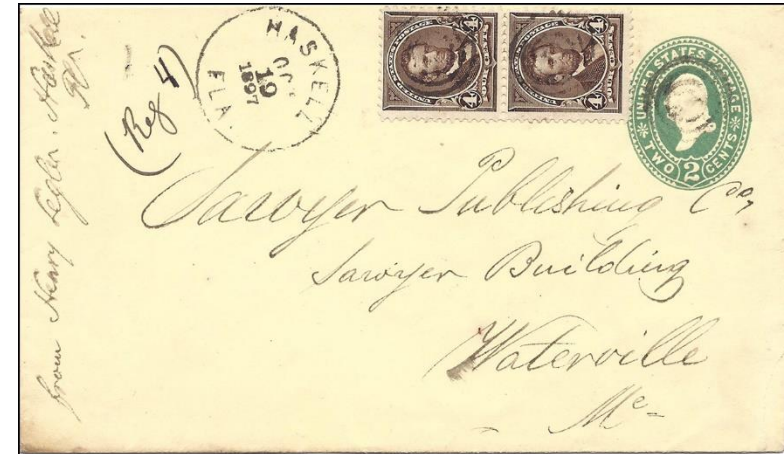 from Henry Legler, Haskell
Fla.
(Reg 4)
HASKELL
OCT
19
1897
FLA.
4
4
UNITED STATES POSTAGE
TWO 2 CENTS
Sawyer Publishing Co,
Sawyer Building
Waterville
Me-